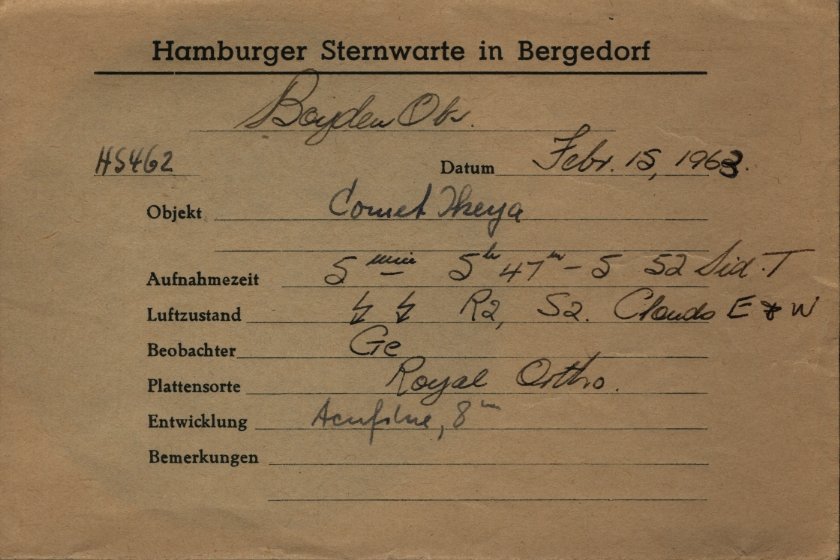 Hamburger Sternwarte in Bergedorf
Boyden Obs.
HS462 Datum Febr. 15, 1963.
Objekt Comet Ikeya
Aufnahmezeit 5 min 5h 47m - 5 52 Sid. T
Luftzustand R2, S2. Clouds E & W
Beobachter Ge
Plattensorte Royal Ortho.
Entwicklung Acufine, 8m
Bemerkungen